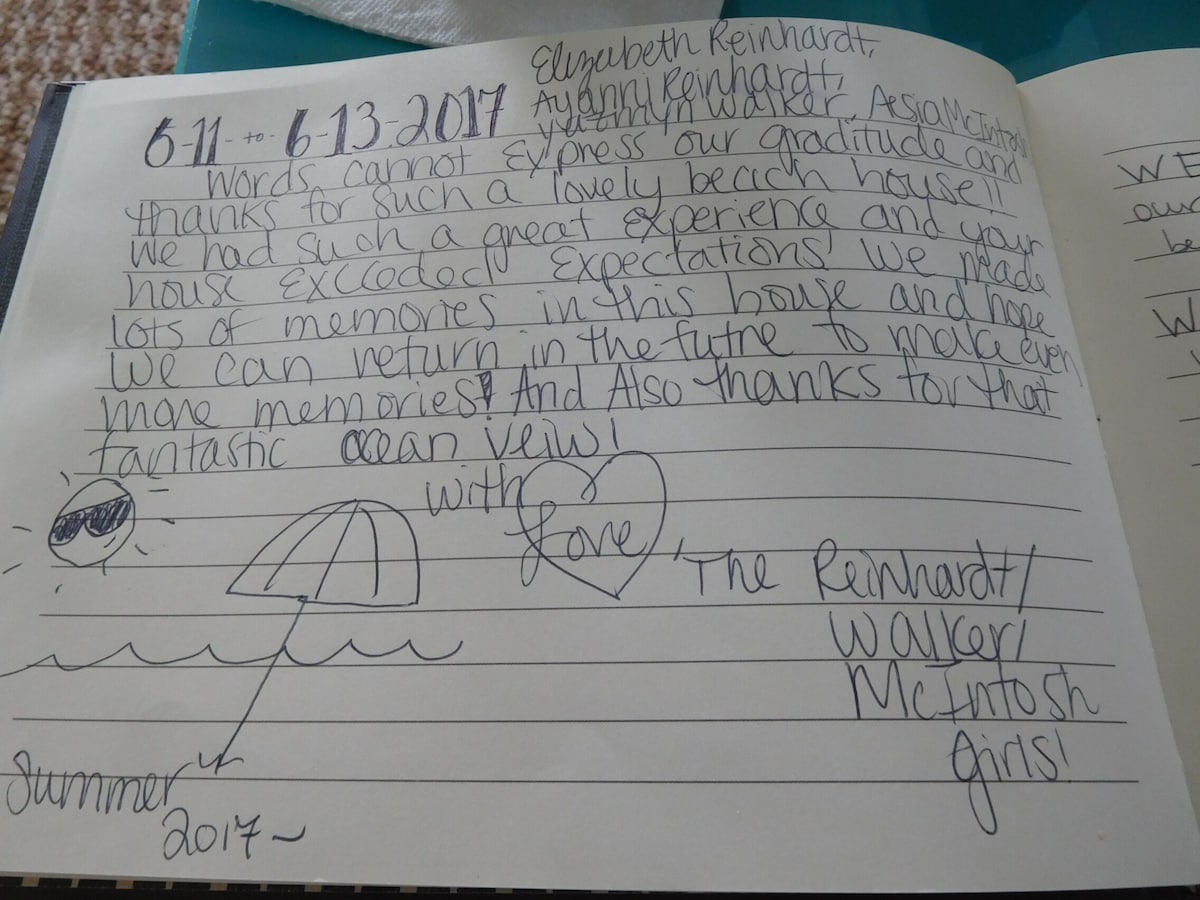 Elizabeth Reinhardt,
Ayanni Reinhardt,
6-11 -to- 6-13-2017 Yazmyn Walker, Aesia McIntosh
Words cannot Express our graditude and
thanks for such a lovely beach house!!
We had such a great experience and your
house exceeded Expectations! We made
lots of memories in this house and hope
we can return in the futre to make even
more memories! And Also thanks for that
fantastic ocean veiw!
With
Love,
The Reinhardt/
Walker/
McIntosh
girls!
Summer
2017~
WE
our
be
W